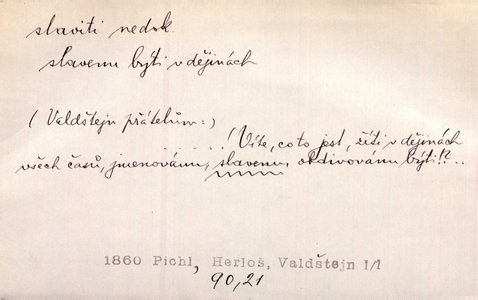 slaviti nedok.
slavenu býti v dějinách
(Valdštejn přátelům:)
. . . . . . ! Víte, co to jest, říti v dějinách
všech časů, jmenovánu, slavenu, obdivovánu býti!? ..
1860 Pichl, Herloš, Valdštejn I/1
90,21